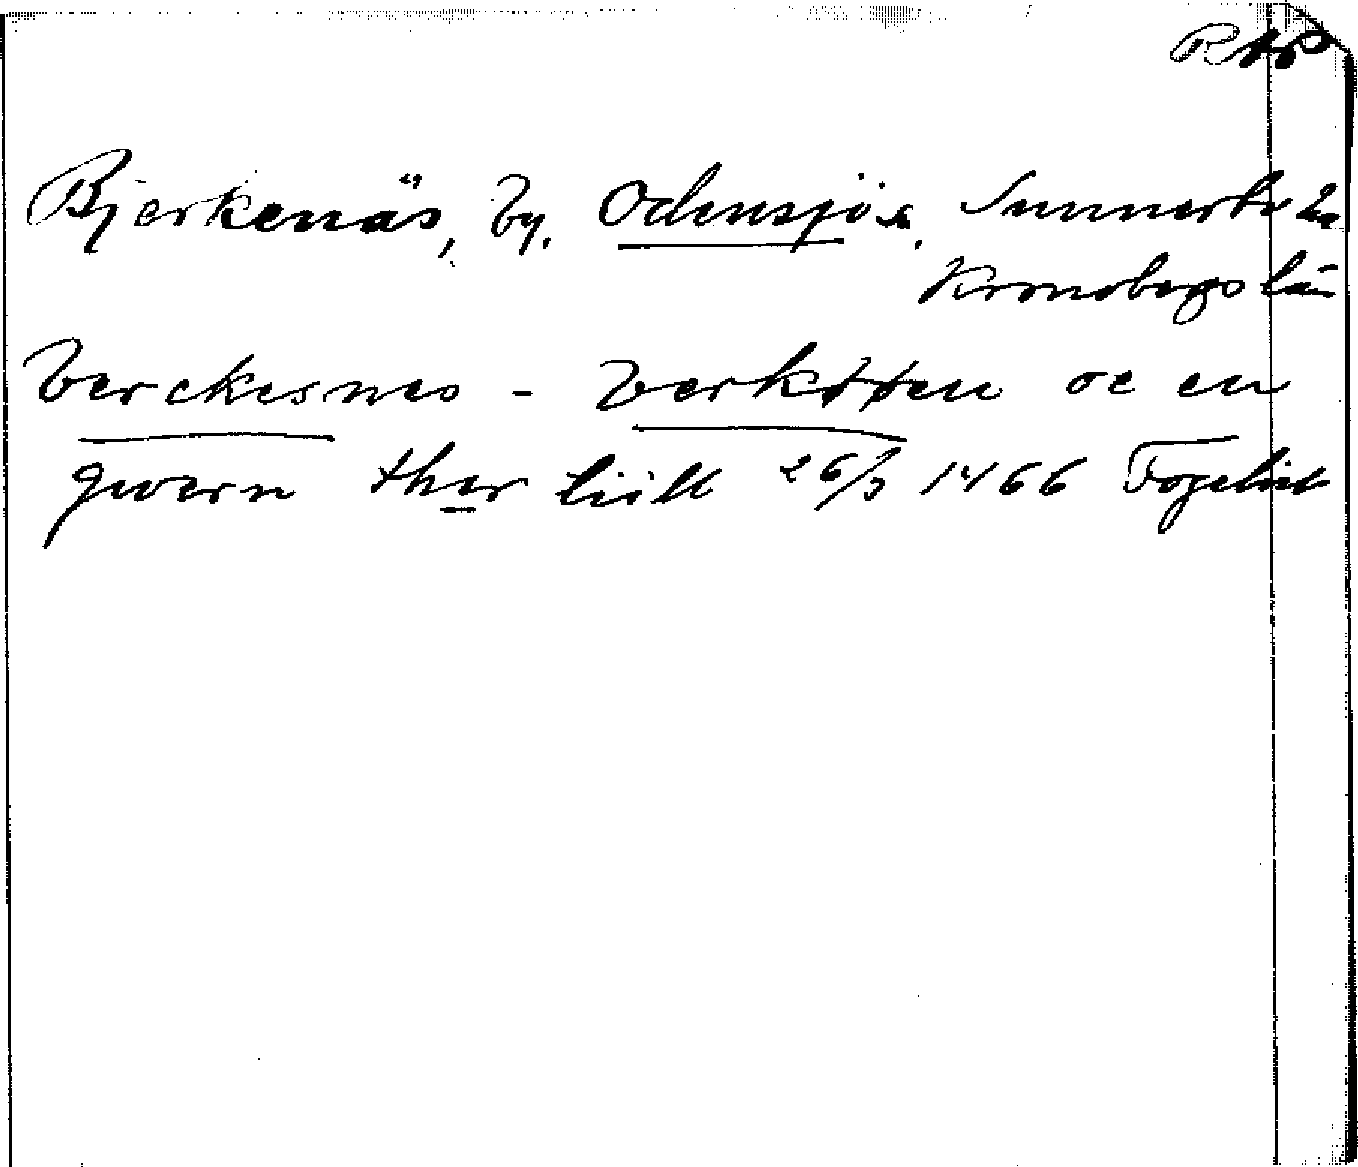 Bjerkenäs, by. Odensjö s. Sunnerbo hd
Kronobergs län
berckesnes - berkøøen oc en
qwern ther tiill 26/3 1466 Fogelvik